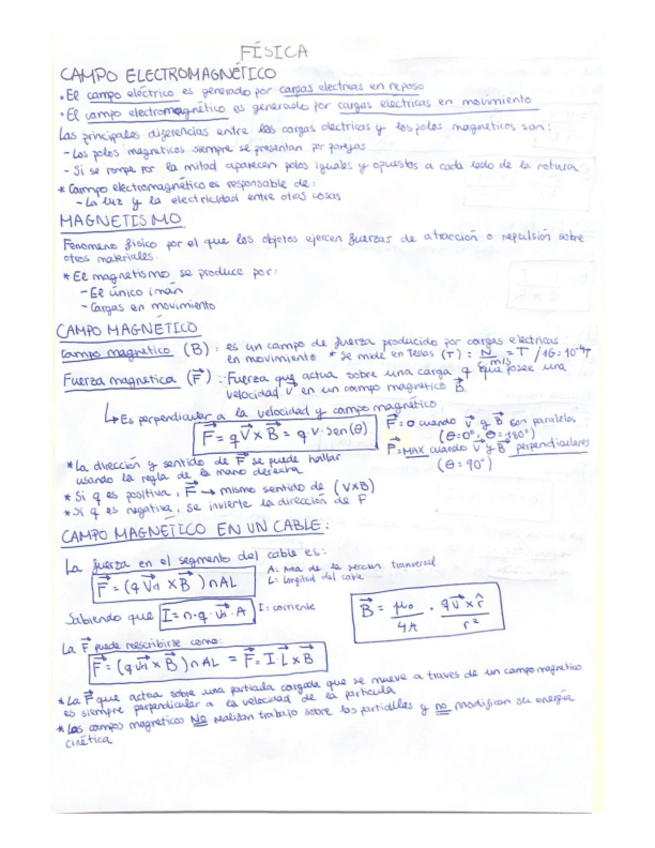 FÍSICA
CAMPO ELECTROMAGNÉTICO
• El campo eléctrico es generado por cargas electricas en reposo
• El campo electromagnético es generado por cargas electricas en movimiento
Las principales diferencias entre las cargas electricas y los polos magneticos son:
- Los polos magneticos siempre se presentan por parejas
- Si se rompe por la mitad aparecen polos iguales y opuestos a cada lado de la rotura
* Campo electromagnético es responsable de:
- La luz y la electricidad entre otras cosas
MAGNETISMO
Fenomeno fisico por el que los objetos ejercen fuerzas de atracción o repulsión sobre
otros materiales.
* El magnetismo se produce por:
- El único imán
- Cargas en movimiento
CAMPO MAGNÉTICO
Campo magnetico (B) : es un campo de fuerza producido por cargas electricas
en movimiento * Se mide en Teslas (T) : N / m/s = T / 1G = 10⁻⁴T
Fuerza magnetica (F⃗) : Fuerza que actua sobre una carga q que posee una
velocidad v⃗ en un campo magnetico B⃗.
↳ Es perpendicular a la velocidad y campo magnético
F⃗ = q V⃗ × B⃗ = q · v · sen(θ)
F⃗ = 0 cuando v⃗ y B⃗ son paralelos
(θ = 0°, θ = 180°)
F⃗ = MAX cuando v⃗ y B⃗ perpendiculares
(θ = 90°)
* La dirección y sentido de F⃗ se puede hallar
usando la regla de la mano derecha
* Si q es positiva, F⃗ → mismo sentido de (V×B)
* Si q es negativa, se invierte la dirección de F
CAMPO MAGNÉTICO EN UN CABLE:
La fuerza en el segmento del cable es:
F⃗ = (q V⃗d × B⃗) n A L
A: Area de la seccion tranversal
L: Longitud del cable
Sabiendo que I = n · q · v⃗d · A I = corriente
B⃗ = μ₀ / 4π · q v⃗ × r̂ / r²
La F⃗ puede reescribirse como:
F⃗ = (q v⃗d × B⃗) n A L = F⃗ = I · L⃗ × B⃗
* La F⃗ que actua sobre una particula cargada que se mueve a traves de un campo magnetico
es siempre perpendicular a la velocidad de la particula
* Los campos magneticos NO realizan trabajo sobre las y no modifican su energía
cinética